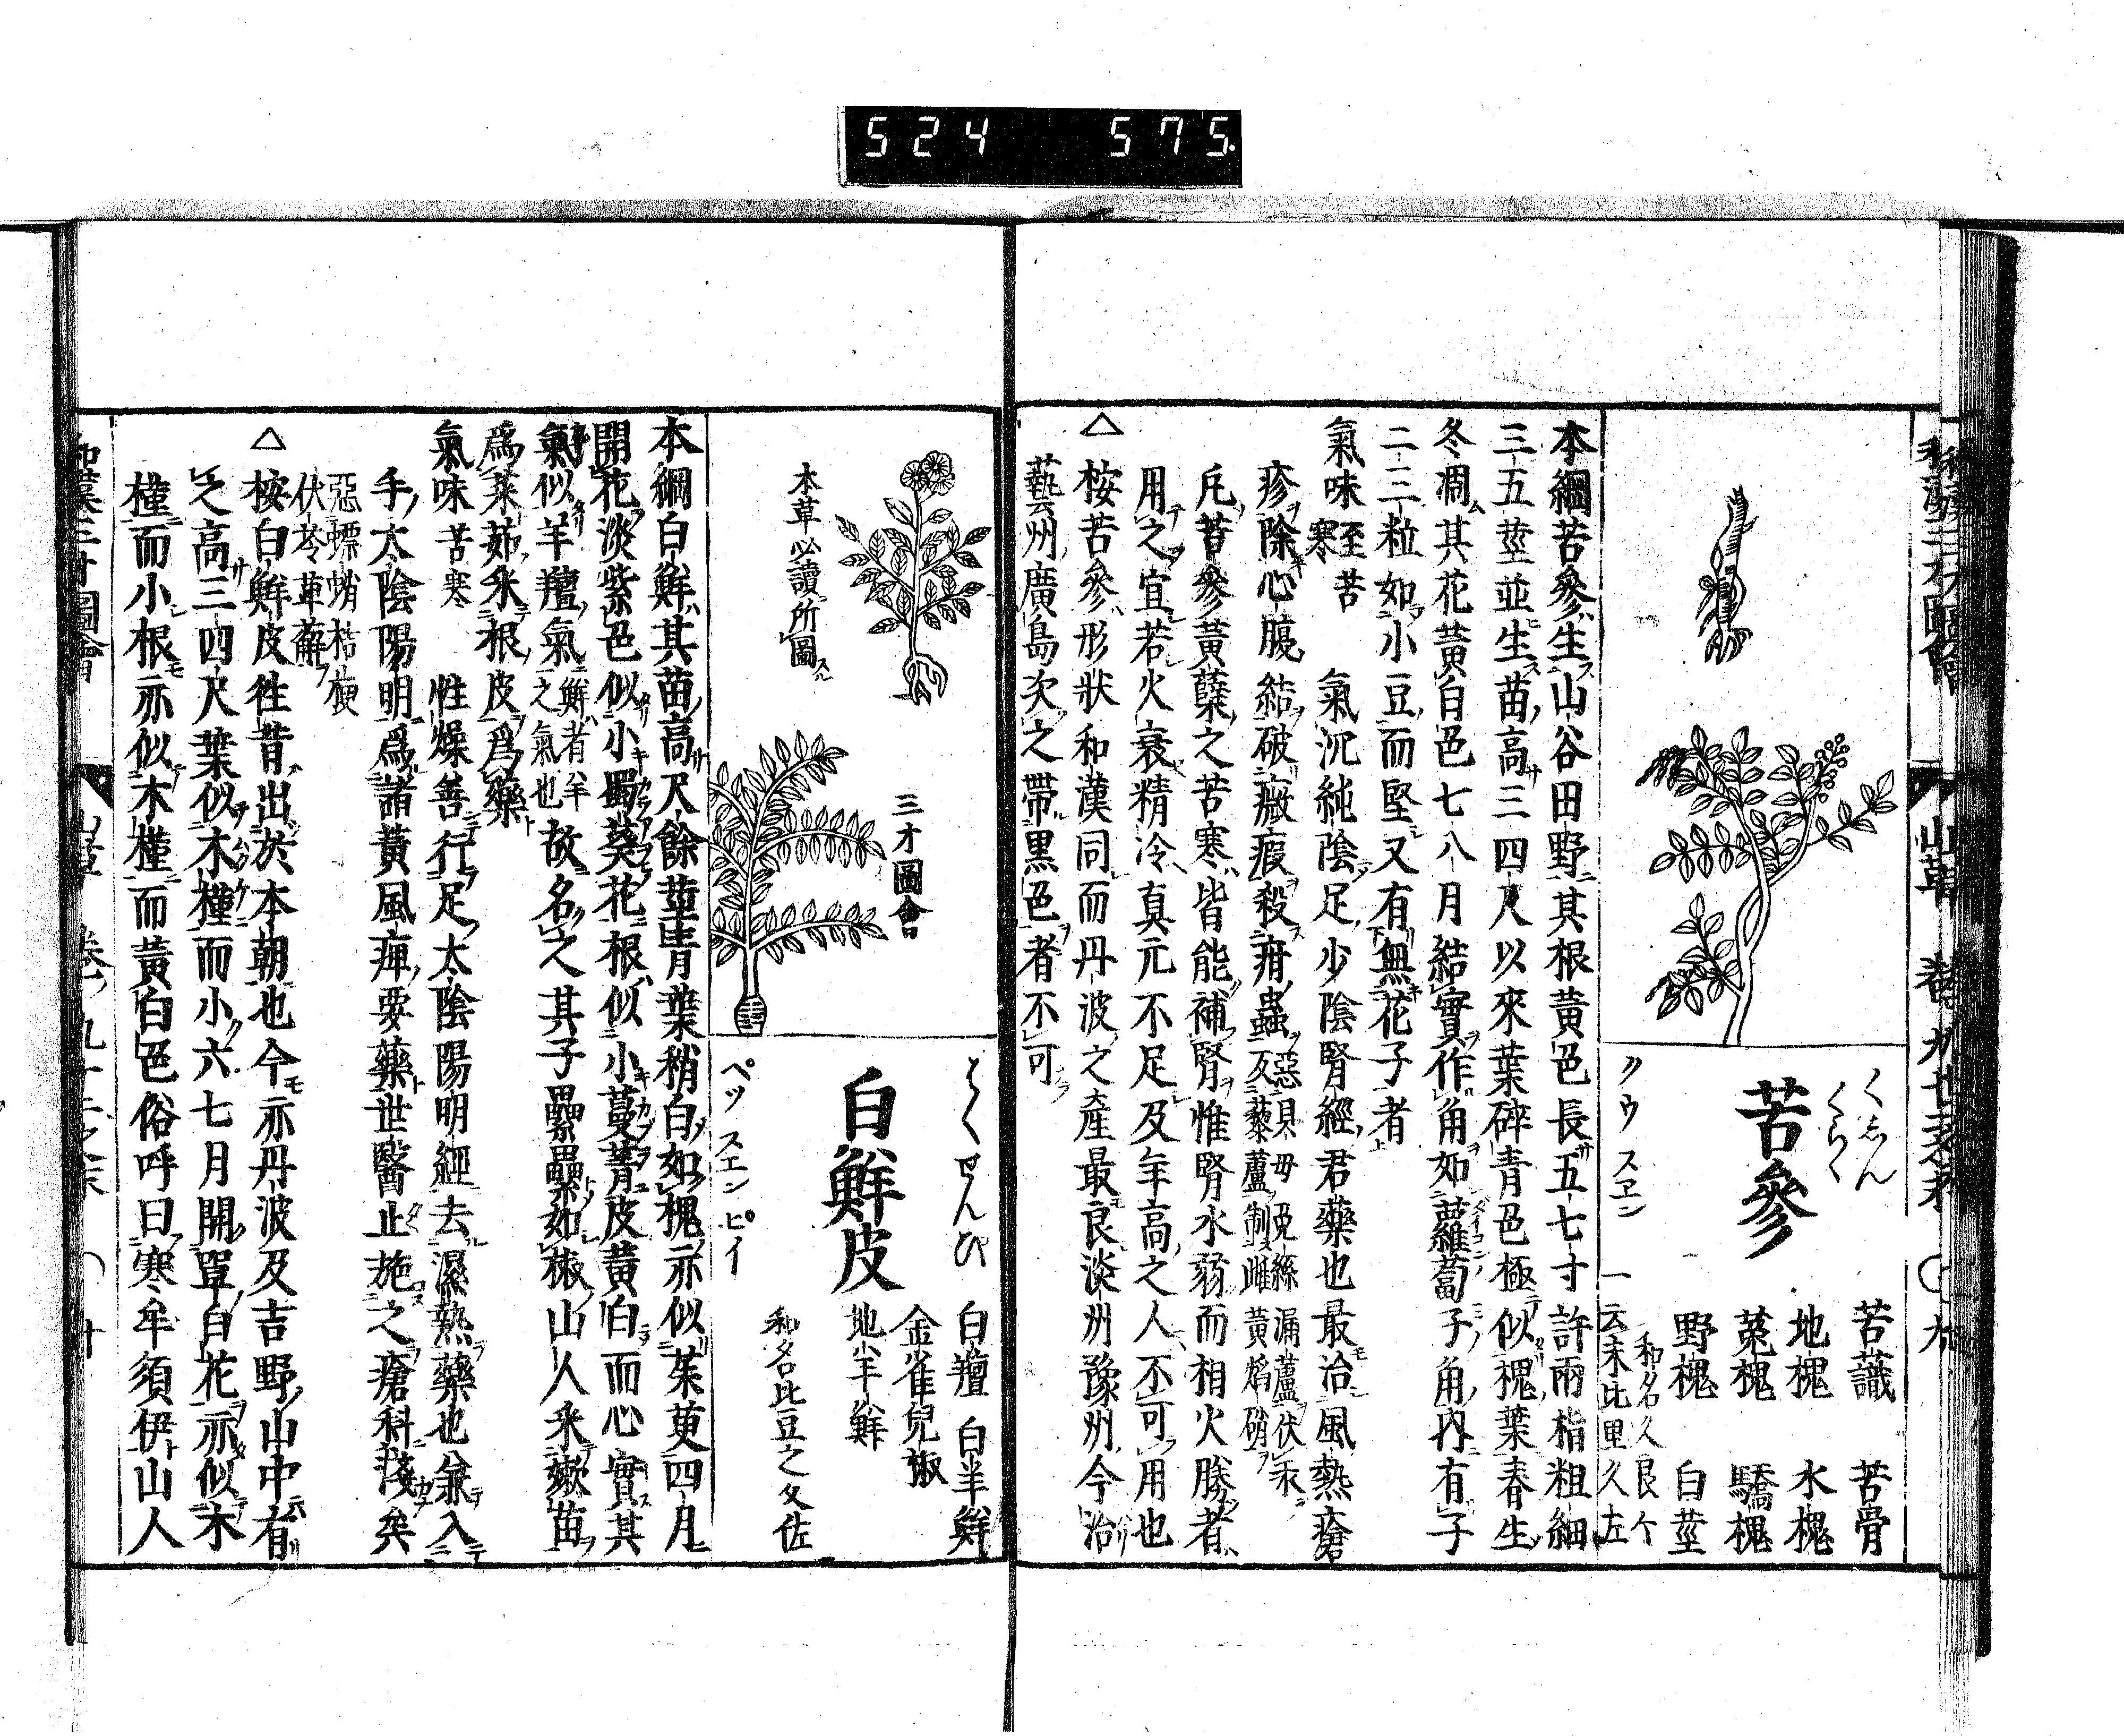 524 575.
和漢三才圖會 山草 卷ノ九十二之末 ○ 九
くしん
くらく
苦參
クウ スヱン
苦𧄹 苦骨
地槐 水槐
菟槐 驕槐
野槐 白莖
和名久良々
一云末比里久左
本綱苦參生山谷田野其根黃色長五七寸許兩指粗細
三五莖並生苗高三四尺以來葉碎青色極似槐葉春生
冬凋其花黃白色七八月結實作角如蘿蔔子角内有子
二三粒如小豆而堅又有無花子者
氣味 至苦寒 氣沉純陰足少陰腎經君藥也最治風熱瘡
疹除心腹結破癥瘕殺疳蟲 惡貝母兎絲漏蘆伏汞
及藜蘆制雌黃焰硝
凡苦參黃蘗之苦寒皆能補腎惟腎水弱而相火勝者
用之宜若火衰精冷真元不足及年高之人不可用也
△ 桉苦參形狀和漢同而丹波之產最良淡州豫州今治
藝州廣島次之帶黑色者不可
本草必讀所圖
三才圖會
はくせんぴ
白鮮皮
ペッ スエン ピイ
白羶 白羊鮮
金雀兒椒
地羊鮮
和名比豆之久佐
本綱白鮮其苗高尺餘莖青葉稍白如槐亦似茱萸四月
開花淡紫色似小蜀葵花根似小蔓菁皮黃白而心實其
氣似羊羶氣 鮮者羊之氣也 故名之其子纍纍如椒山人采嫩苗
爲菜茹采根皮爲藥
氣味 苦寒 性燥善行足太陰陽明經去濕熱藥也兼入
手太陰陽明爲諸黃風痺要藥世醫止施之瘡科淺矣
惡螵蛸桔梗
伏苓萆薢
△ 桉白鮮皮徃昔出於本朝也今亦丹波及吉野山中有
之高三四尺葉似木槿而小六七月開單白花亦似木
槿而小根亦似木槿而黃白色俗呼曰寒牟須伊山人
和漢三才圖會 山草 卷ノ九十二之末 ○ 十